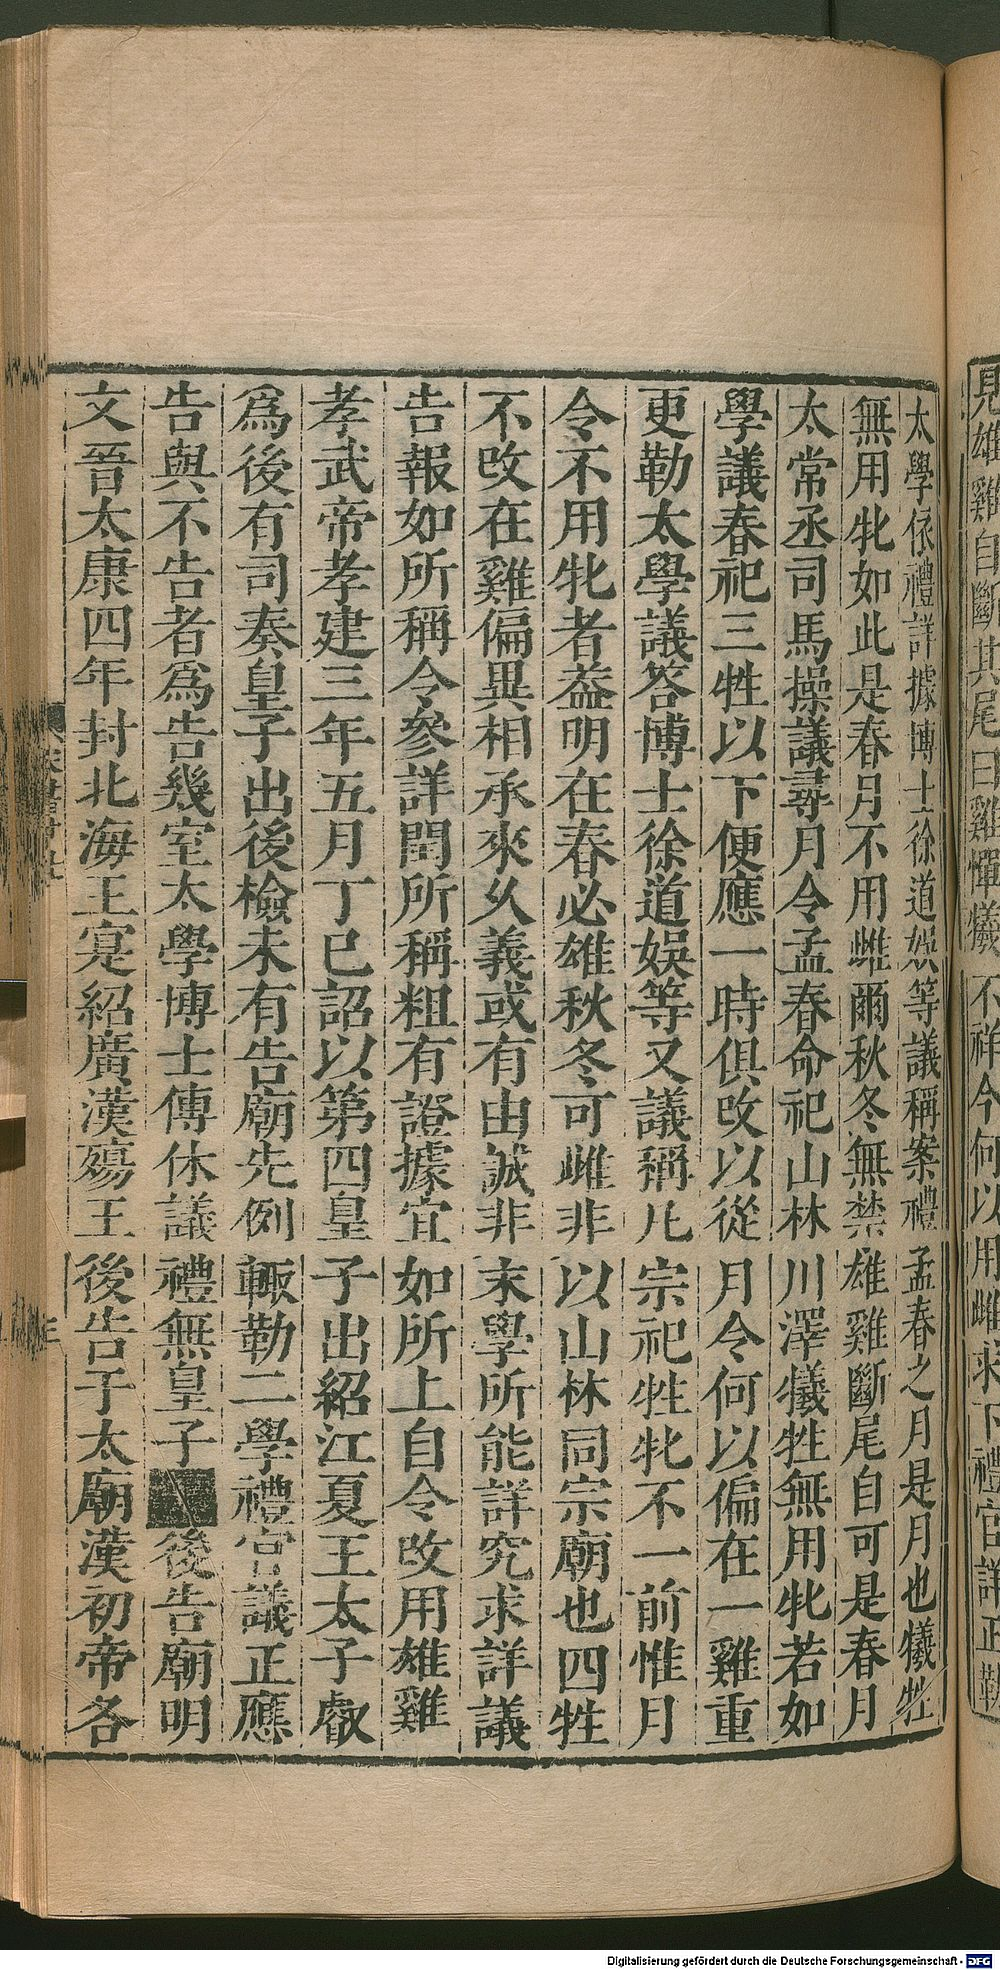 見雄雞自斷其尾曰雞憚犧不祥今何以用雌求下禮官詳正勒
太學依禮詳據博士徐道娛等議稱案禮孟春之月是月也犧牲
無用牝如此是春月不用雌爾秋冬無禁雄雞斷尾自可是春月
太常丞司馬操議尋月令孟春命祀山林川澤犧牲無用牝若如
學議春祀三牲以下便應一時俱改以從月令何以偏在一雞重
更勒太學議答博士徐道娛等又議稱凢宗祀牲牝不一前惟月
令不用牝者葢明在春必雄秋冬可雌非以山林同宗廟也四牲
不改在雞偏異相承來乆義或有由誠非末學所能詳究求詳議
告報如所稱令參詳閏所稱粗有證據宜如所上自今改用雄雞
孝武帝孝建三年五月丁巳詔以第四皇子出紹江夏王太子叡
爲後有司奏皇子出後檢未有告廟先例輙勒二學禮官議正應
告與不告者爲告幾室太學博士傅休議禮無皇子後告廟明
文晉太康四年封北海王寔紹廣漢殤王後告于太廟漢初帝各
Digitalisierung gefördert durch die Deutsche Forschungsgemeinschaft - DFG